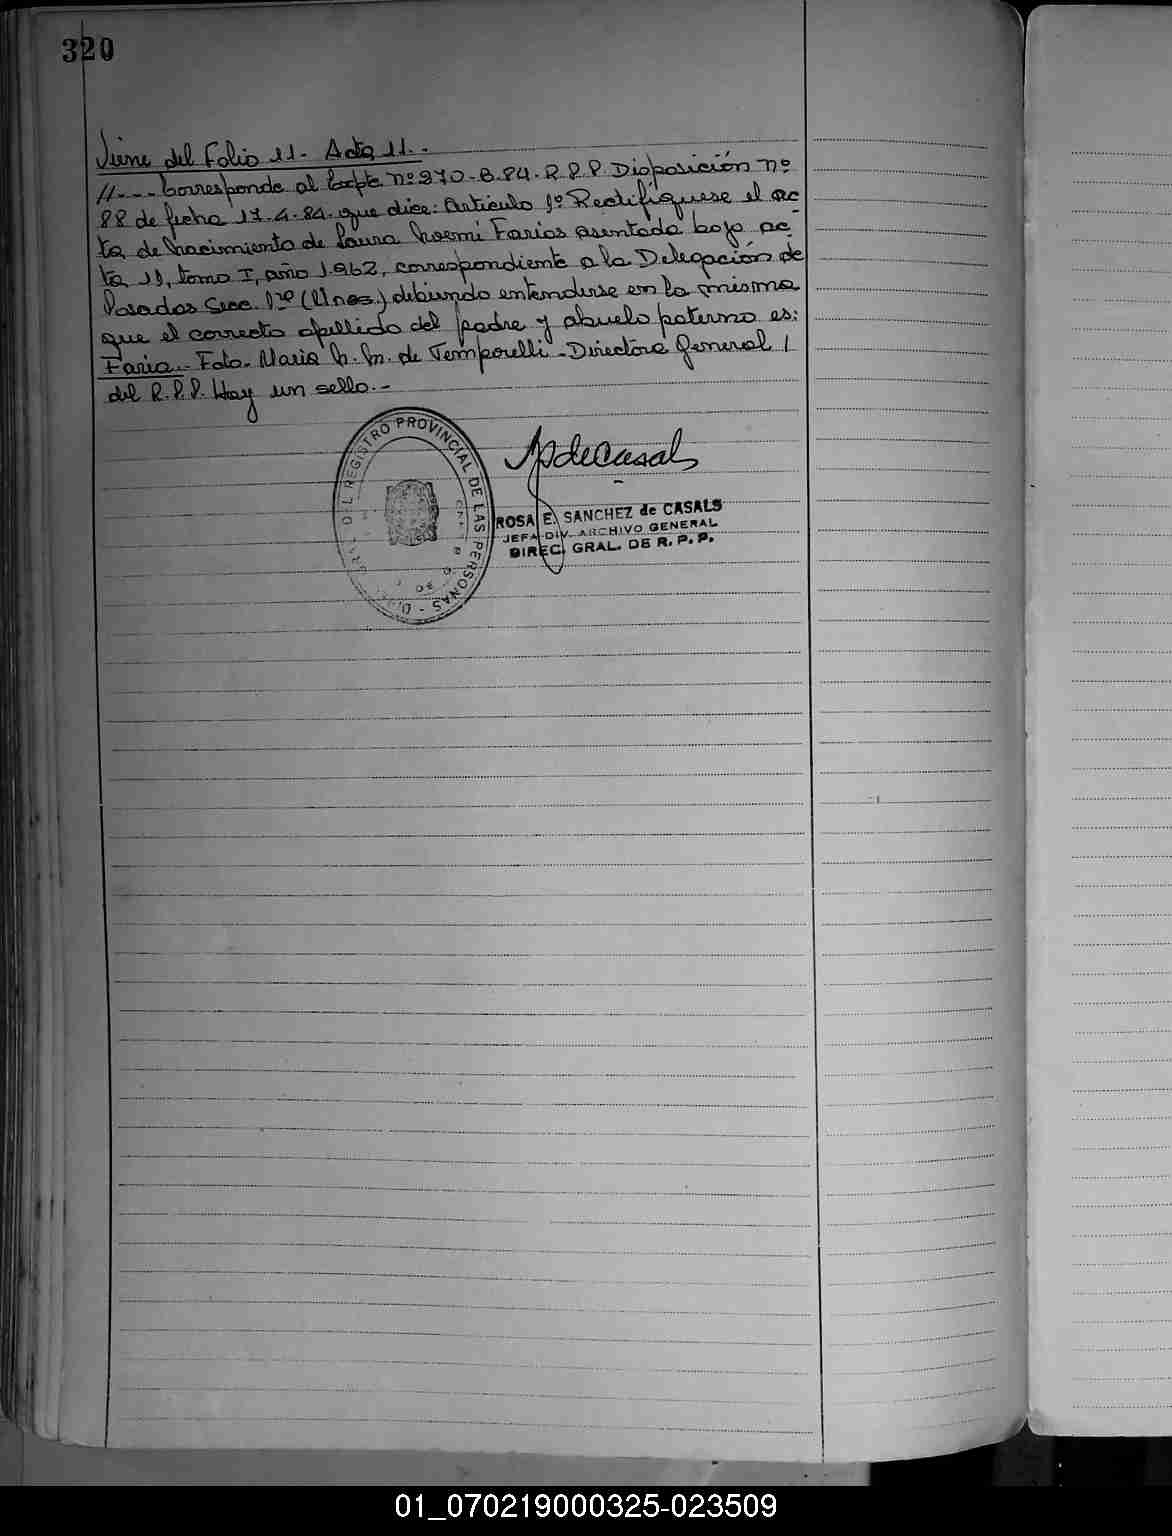 320
Viene del Folio 11 - Acta 11.-
//--- Corresponde al Expte. nº 970-B-84. R.P.P. Disposición nº
88 de fecha 17.4.84. que dice: Artículo 1º Rectifíquese el ac-
ta de Nacimiento de Laura Noemi Farias asentada bajo ac-
ta 11, tomo I, año 1.962, correspondiente a la Delegación de
Posadas Secc. 1ra (Unos.) debiendo entenderse en la misma
que el correcto apellido del padre y abuelo paterno es:
Faria.- Fdo. Maria N. M. de Temporelli - Directora General /
del R.P.P. Hay un sello.-
REGISTRO PROVINCIAL DE LAS PERSONAS
ROSA E. SANCHEZ de CASALS
JEFA DIV. ARCHIVO GENERAL
DIREC. GRAL. DE R. P. P.
01_070219000325-023509